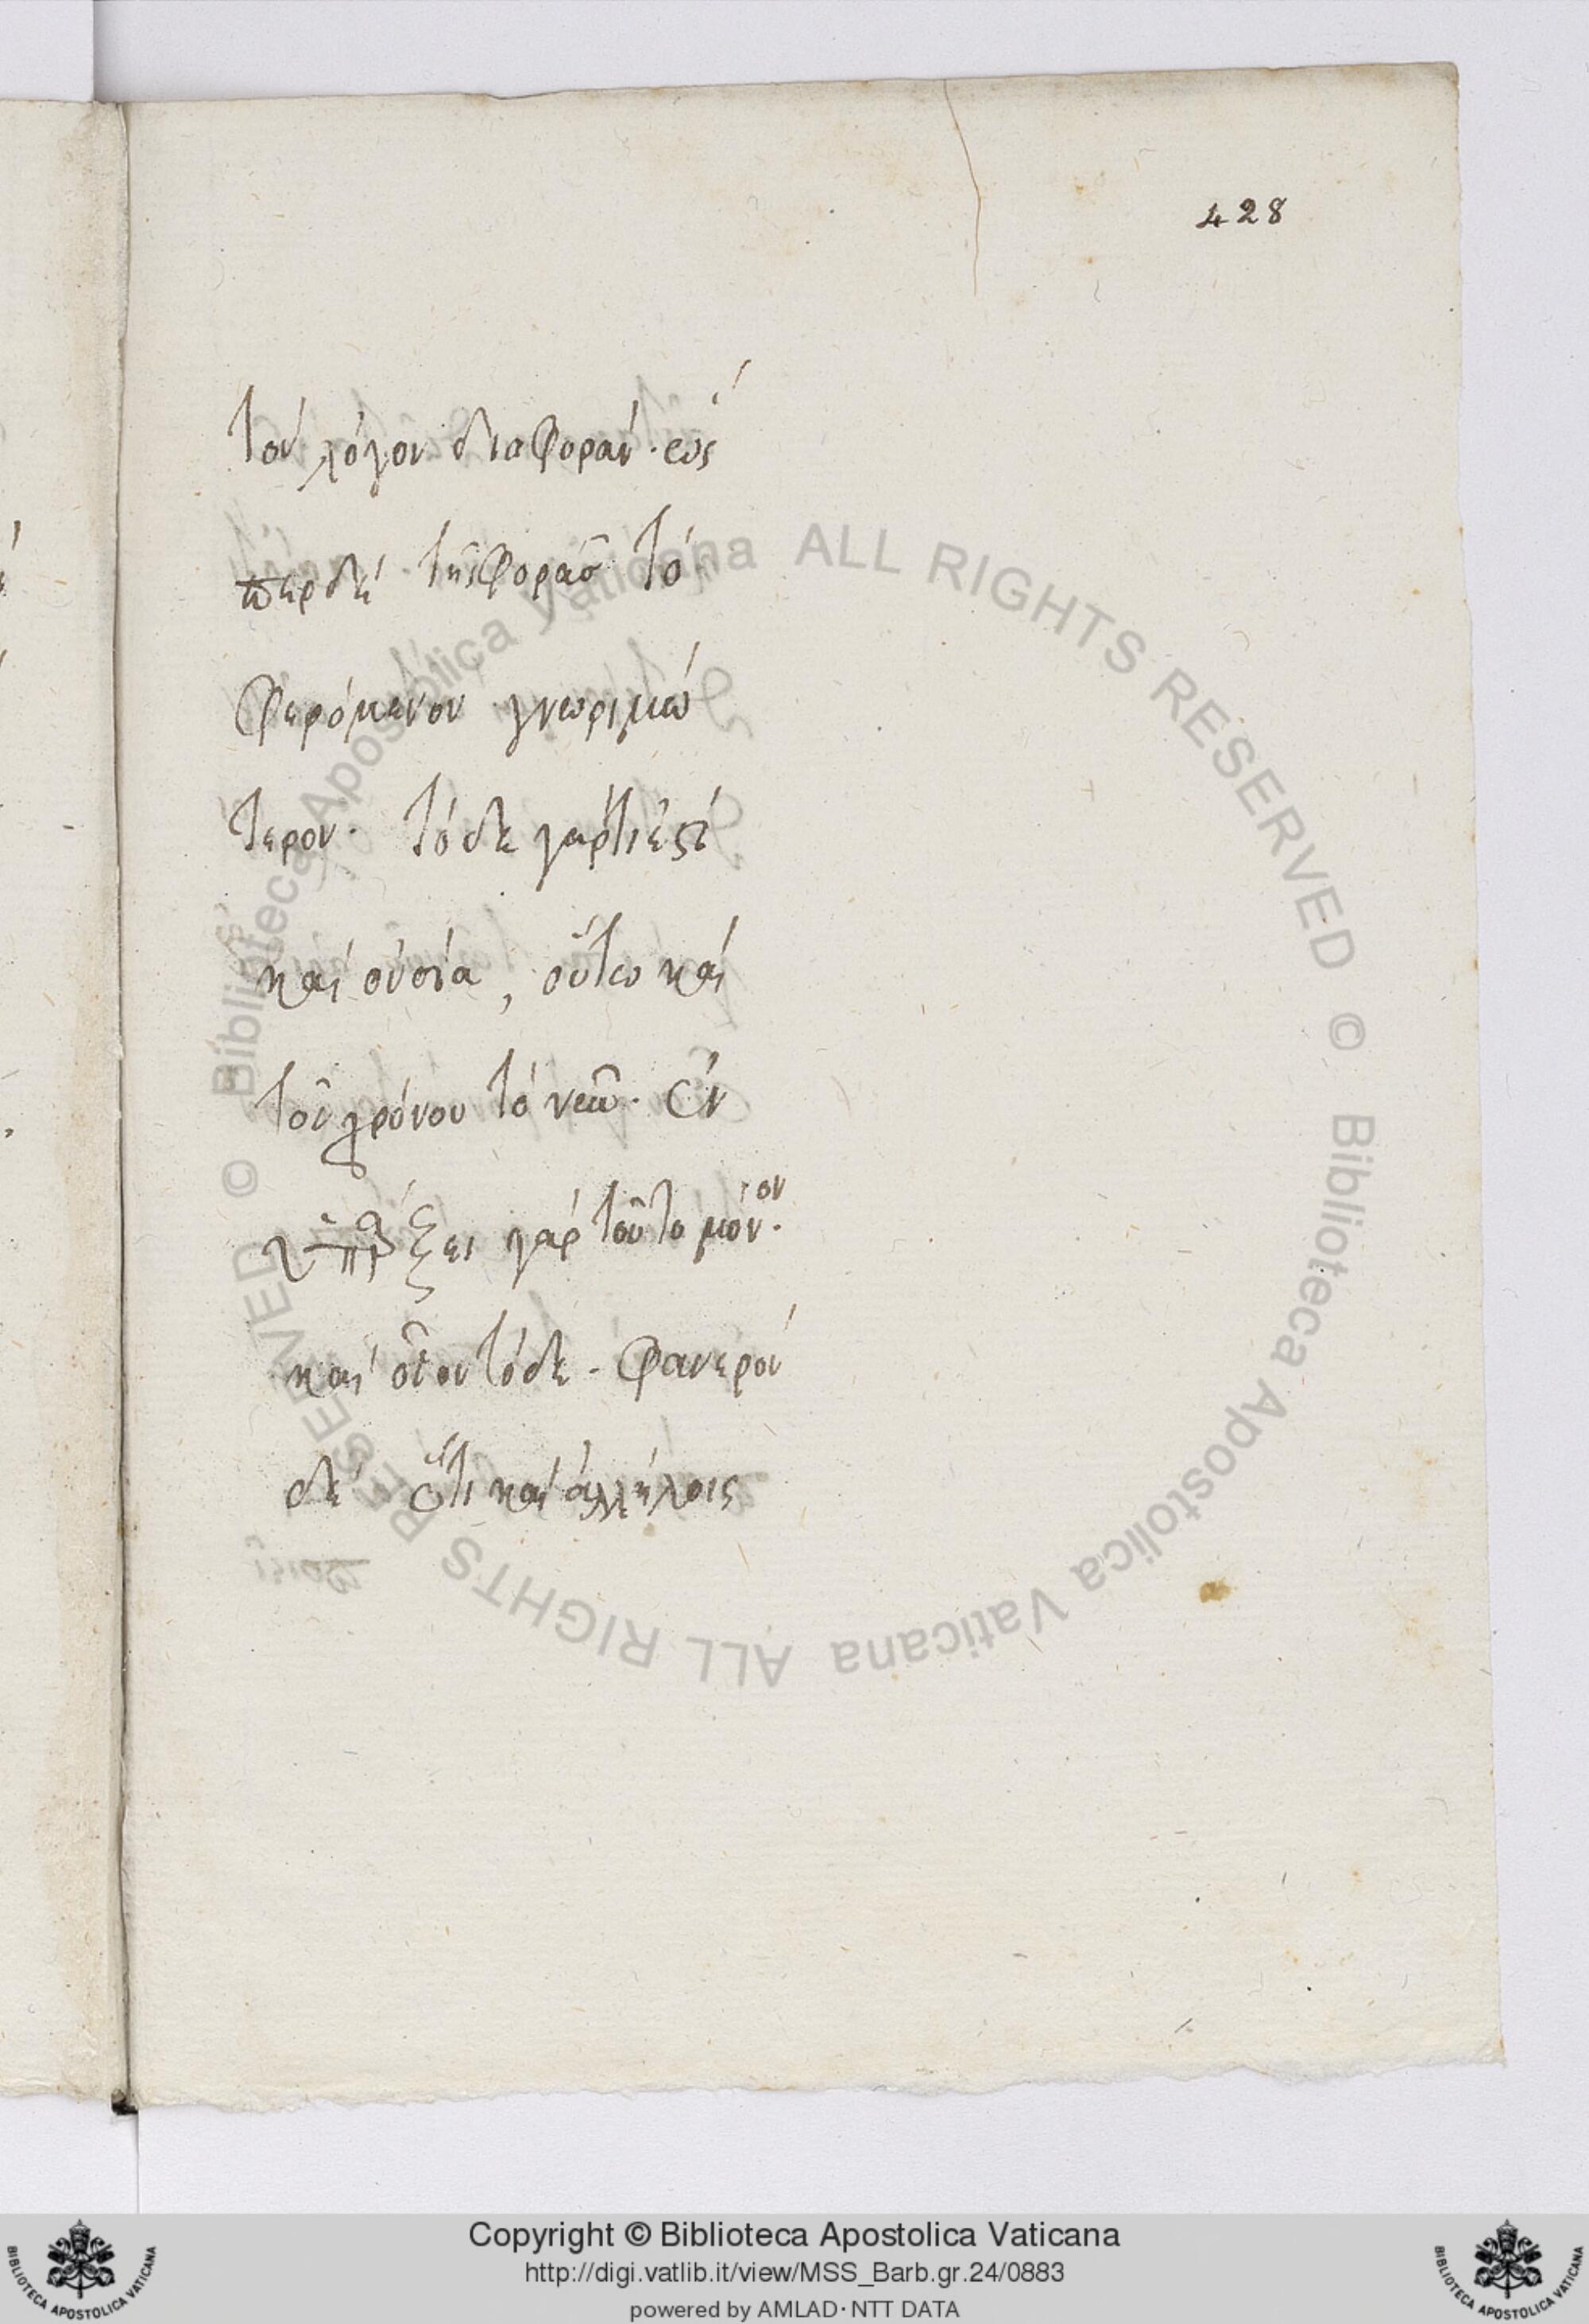 428
τὸν λόγον διαφοράν. ὥσ
περ δὲ τῆς φορᾶς τὸ
φερόμενον γνωριμώ
τερον. τόδε γάρ τι ἐστὶ
καὶ οὐσία, οὕτω καὶ
τοῦ χρόνου τὸ νῦν. ἐν
γὰρ τοῦτο μόνον.
καὶ τόδε. φανερὸν
δὲ ὅτι καὶ ἀλλήλοις
© Biblioteca Apostolica Vaticana ALL RIGHTS RESERVED © Biblioteca Apostolica Vaticana ALL RIGHTS RESERVED
Copyright © Biblioteca Apostolica Vaticana
http://digi.vatlib.it/view/MSS_Barb.gr.24/0883
powered by AMLAD · NTT DATA
BIBLIOTECA APOSTOLICA VATICANA
BIBLIOTECA APOSTOLICA VATICANA